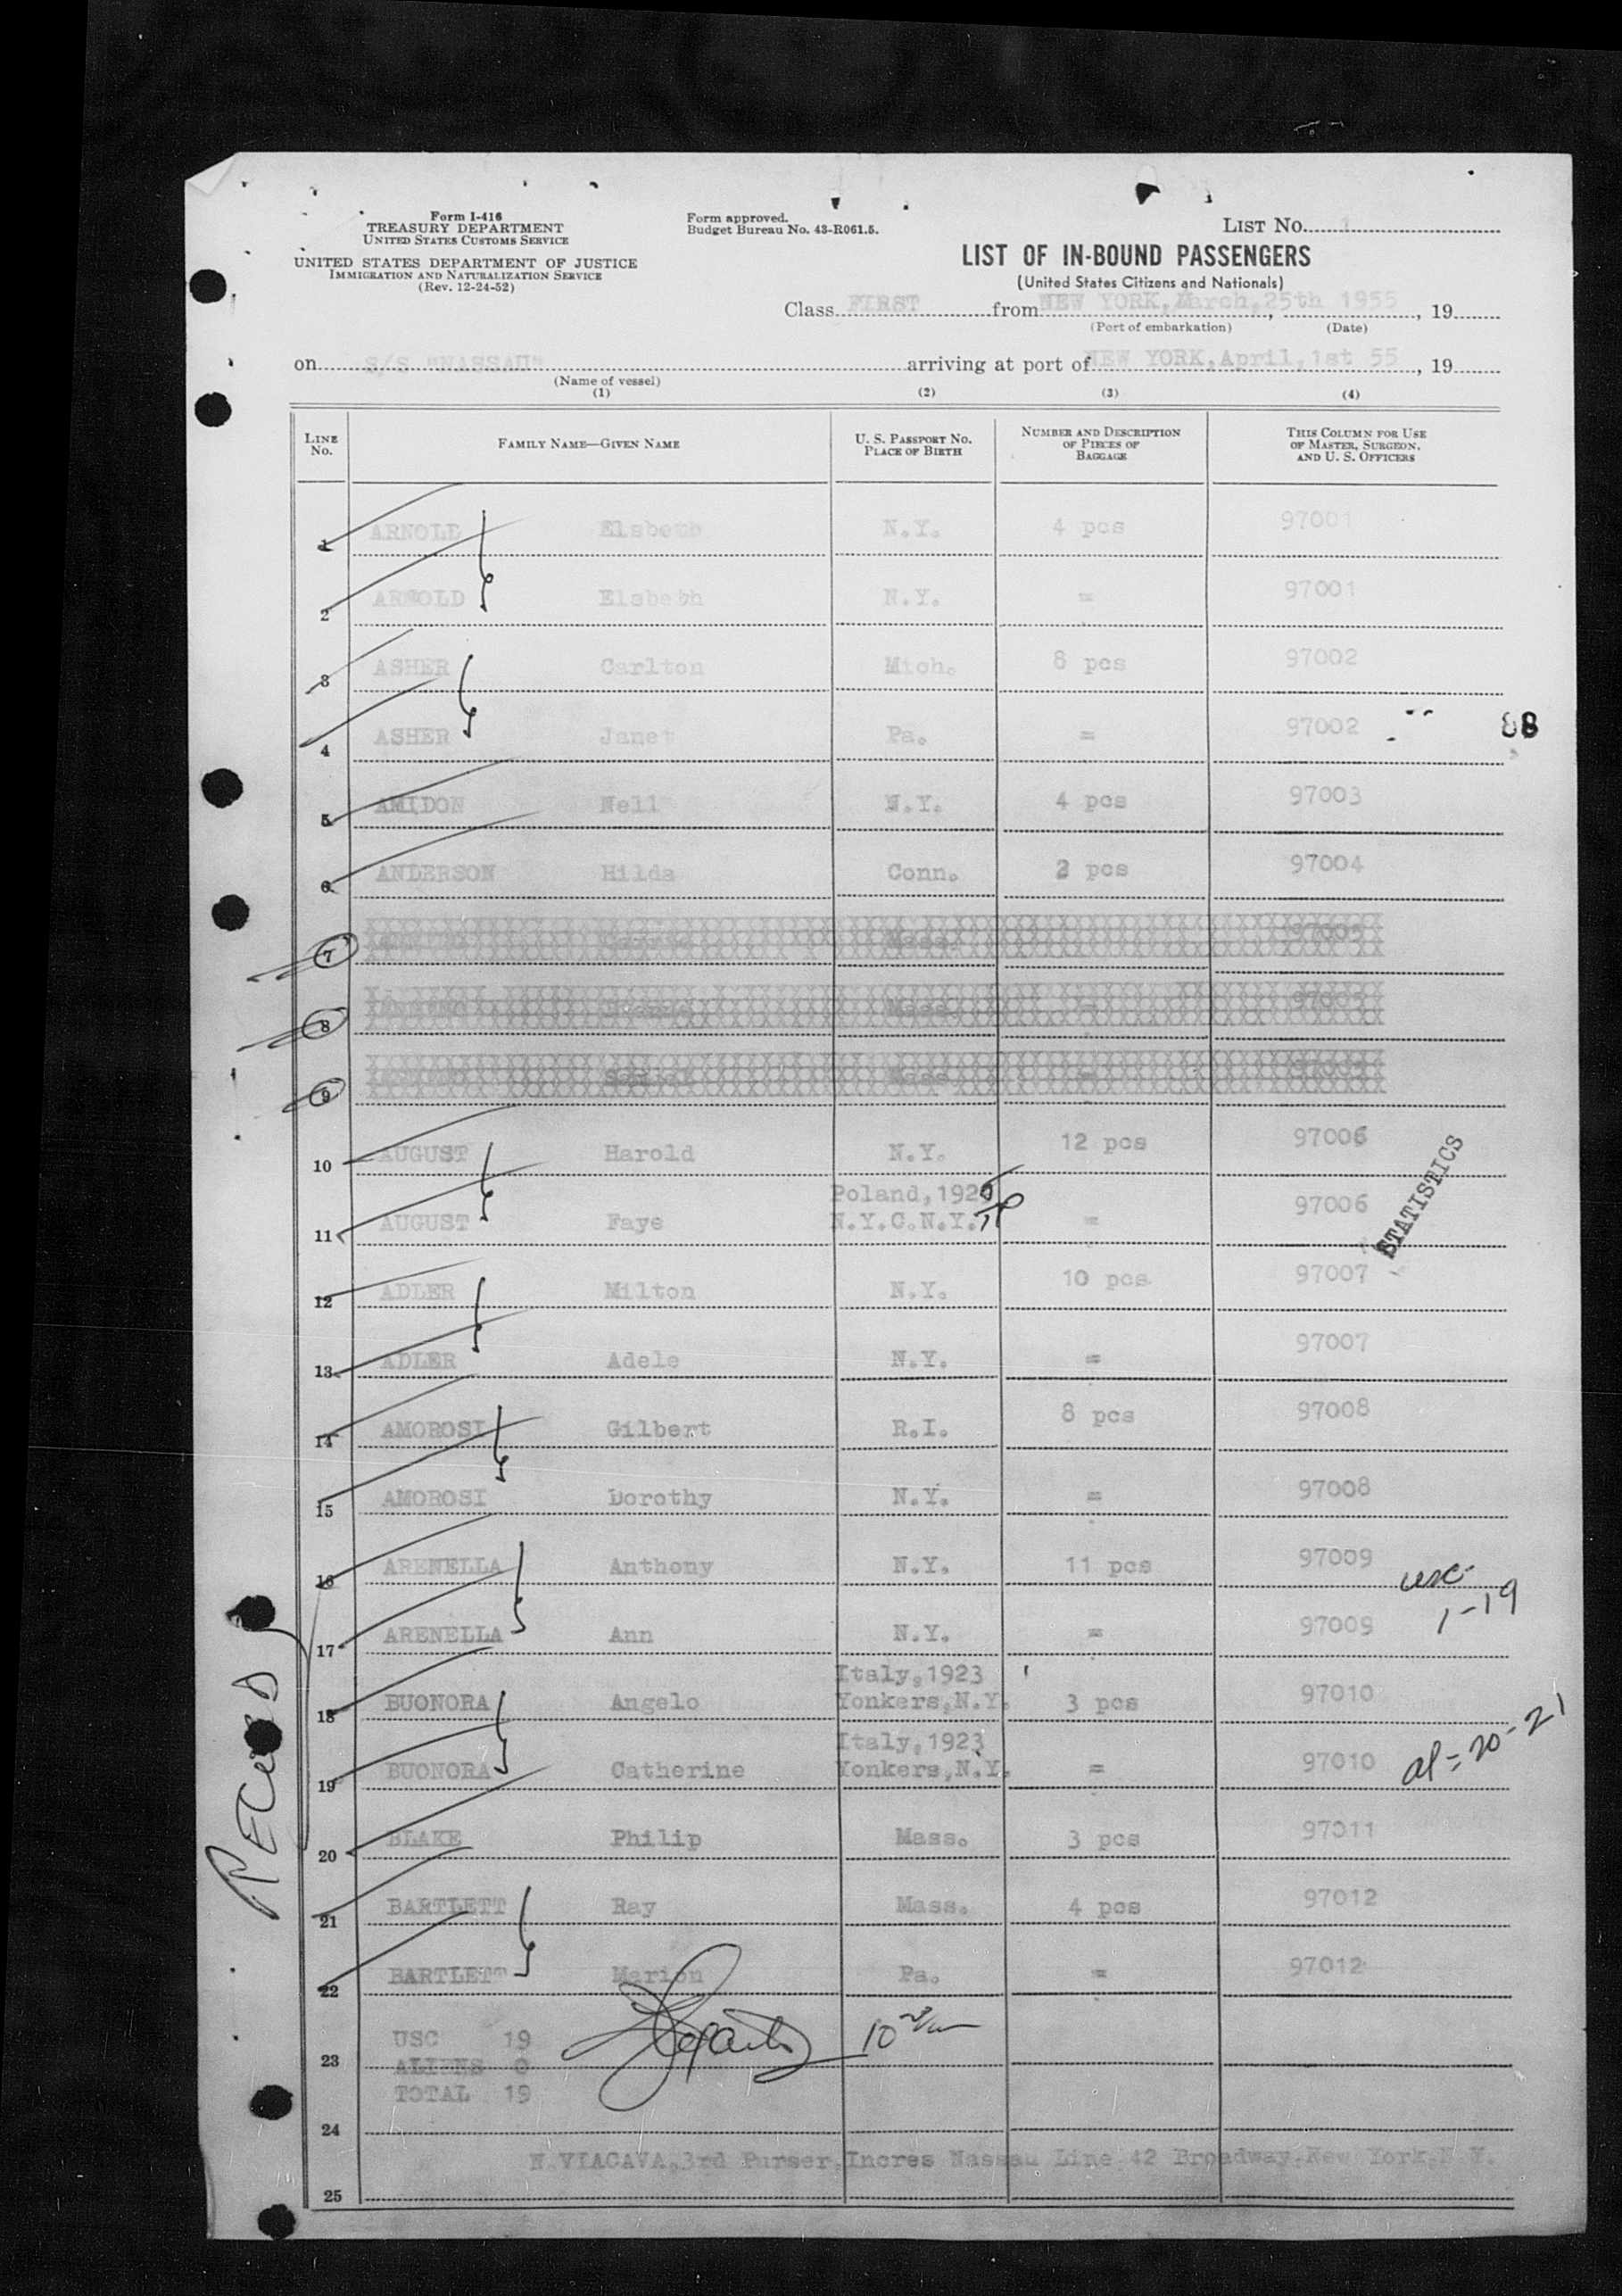 Form I-416
TREASURY DEPARTMENT
UNITED STATES CUSTOMS SERVICE
UNITED STATES DEPARTMENT OF JUSTICE
IMMIGRATION AND NATURALIZATION SERVICE
(Rev. 12-24-52)
Form approved.
Budget Bureau No. 43-R061.5.
LIST No. 1
LIST OF IN-BOUND PASSENGERS
(United States Citizens and Nationals)
Class FIRST from NEW YORK, March, 25th 1955, 19
(Port of embarkation) (Date)
on S/S "NASSAU" arriving at port of NEW YORK, April, 1st 55, 19
(Name of vessel)
(1) (2) (3) (4)
LINE No. FAMILY NAME—GIVEN NAME U. S. PASSPORT No. PLACE OF BIRTH NUMBER AND DESCRIPTION OF PIECES OF BAGGAGE THIS COLUMN FOR USE OF MASTER, SURGEON, AND U. S. OFFICERS
1 ARNOLD Elsbeth N.Y. 4 pcs 97001
2 ARNOLD Elsbeth N.Y. = 97001
3 ASHER Carlton Mich. 8 pcs 97002
4 ASHER Janet Pa. = 97002
88
5 AMIDON Nell N.Y. 4 pcs 97003
6 ANDERSON Hilda Conn. 2 pcs 97004
7 Mass. 97005
8 Mass. = 97005
9 Mass. = 97005
10 AUGUST Harold N.Y. 12 pcs 97006
STATISTICS
Poland, 192
11 AUGUST Faye N.Y.C.N.Y. = 97006
12 ADLER Milton N.Y. 10 pcs 97007
13 ADLER Adele N.Y. = 97007
14 AMOROSI Gilbert R.I. 8 pcs 97008
15 AMOROSI Dorothy N.Y. = 97008
16 ARENELLA Anthony N.Y. 11 pcs 97009
usc
1-19
17 ARENELLA Ann N.Y. = 97009
Italy, 1923
18 BUONORA Angelo Yonkers, N.Y. 3 pcs 97010
Italy, 1923
19 BUONORA Catherine Yonkers, N.Y. = 97010
al = 20-21
20 BLAKE Philip Mass. 3 pcs 97011
21 BARTLETT Ray Mass. 4 pcs 97012
22 BARTLETT Marion Pa. = 97012
USC 19
23 ALIENS 0
TOTAL 19
24
N.VIACAVA, 3rd Purser, Incres Nassau Line 42 Broadway, New York, N.Y.
25